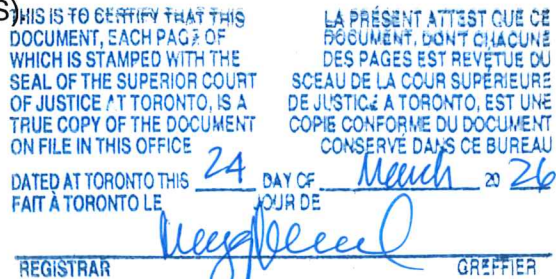 S)
THIS IS TO CERTIFY THAT THIS
DOCUMENT, EACH PAGE OF
WHICH IS STAMPED WITH THE
SEAL OF THE SUPERIOR COURT
OF JUSTICE AT TORONTO, IS A
TRUE COPY OF THE DOCUMENT
ON FILE IN THIS OFFICE
LA PRÉSENT ATTEST QUE CE
DOCUMENT, DONT CHACUNE
DES PAGES EST REVÊTUE DU
SCEAU DE LA COUR SUPÉRIEURE
DE JUSTICE A TORONTO, EST UNE
COPIE CONFORME DU DOCUMENT
CONSERVÉ DANS CE BUREAU
DATED AT TORONTO THIS 24 DAY OF March 20 26
FAIT À TORONTO LE JOUR DE
REGISTRAR GREFFIER